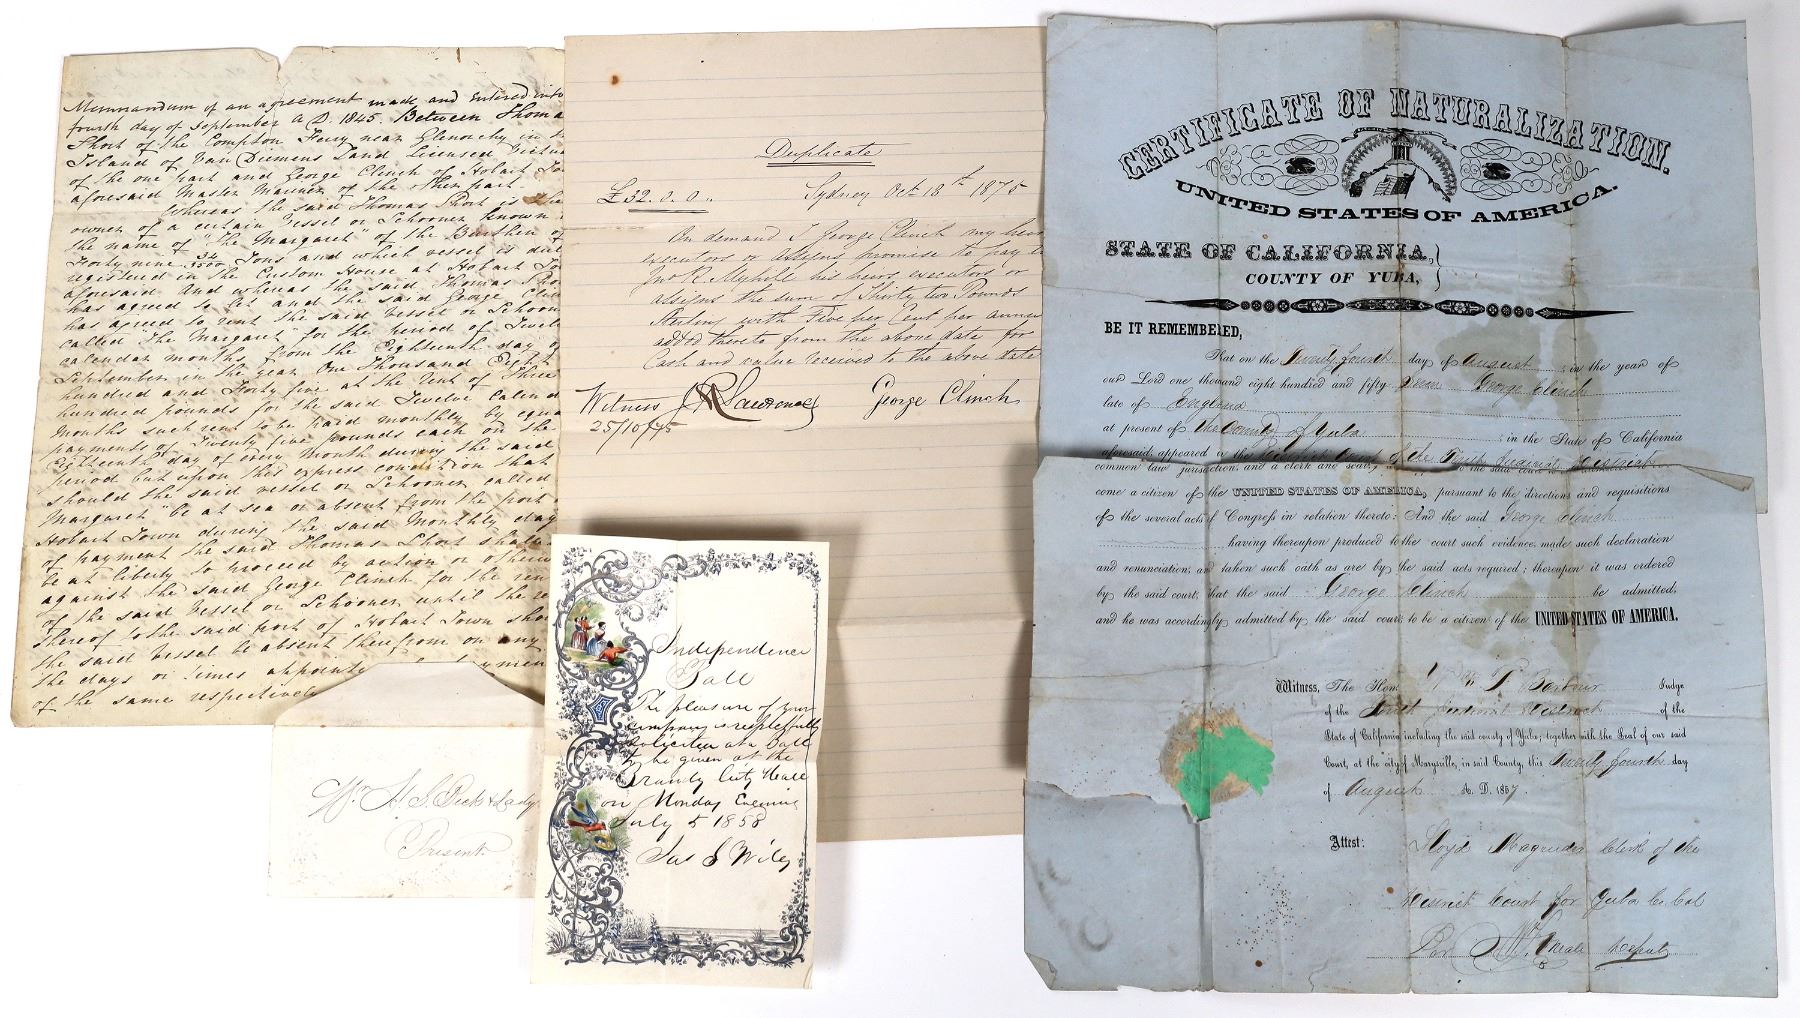 Memorandum of an agreement made and entered into
fourth day of September A D. 1845. Between Thoma
Short of the Compton Ferry near Glenorchy in
Island of Van Diemens Land Licensed Victu
of the one part and George Clinch of Hobart To
aforesaid Master Mariner of the other part.
Whereas the said Thomas Short is the
owner of a certain Vessel or Schooner known
the name of "The Margaret" of the Burthen of
Forty nine 34/3500 Tons and which vessel is
registered in the Custom House at Hobart Tow
aforesaid And whereas the said Thomas Sho
has agreed to let and the said George Clin
has agreed to rent the said Vessel or Schoon
called "The Margaret" for the period of Twelve
calendar months from the Eighteenth day of
September in the year One Thousand Eight
hundred and Forty five at the rent of Three
hundred pounds for the said Twelve Calend
Months such rent to be paid monthly by equa
payments of Twenty five pounds each on the
Eighteenth day of every month during the said
Period but upon this express condition that
should the said vessel or Schooner called
Margaret" be at sea or absent from the port
Hobart Town during the said monthly day
of payment the said Thomas Short shall
be at liberty to proceed by action or otherw
against the said George Clinch for the ren
of the said Vessel or Schooner until the re
thereof to the said port of Hobart Town sho
the said Vessel be absent therefrom on any
the days or times appointed paymen
of the same respectively
Duplicate
£32.0.0.. Sydney Oct 18th 1875
On demand I George Clinch my heirs
executors or assigns promise to pay to
Jno R. Myhill his heirs executors or
assigns the sum of Thirty two Pounds
Sterling with Five per Cent per annum
added thereto from the above date for
Cash and value received to the above date
Witness J R Lawrence George Clinch
25/10/75
Mr. H. S. Peck & Lady
Present
Independence
Ball
The pleasure of your
company is respectfully
solicited at a Ball
to be given at the
Brandy City House
on Monday Evening
July 5 1858
Jas S Wiley
CERTIFICATE OF NATURALIZATION.
UNITED STATES OF AMERICA.
STATE OF CALIFORNIA,
COUNTY OF YUBA,
BE IT REMEMBERED,
That on the Twenty fourth day of August in the year of
our Lord one thousand eight hundred and fifty Seven George Clinch
late of England
at present of the County of Yuba in the State of California
aforesaid, appeared in the District Court of the Tenth Judicial District
common law jurisdiction, and a clerk and seal,
come a citizen of the UNITED STATES OF AMERICA, pursuant to the directions and requisitions
of the several acts of Congress in relation thereto: And the said George Clinch
having thereupon produced to the court such evidence, made such declaration
and renunciation, and taken such oath as are by the said acts required; thereupon it was ordered
by the said court, that the said George Clinch be admitted,
and he was accordingly admitted by the said court to be a citizen of the UNITED STATES OF AMERICA.
Witness, The Hon. Wm T Barbour Judge
of the Tenth Judicial District of the
State of California including the said county of Yuba; together with the Seal of our said
Court, at the city of Marysville, in said County, this Twenty fourth day
of August A. D. 1857.
Attest: Lloyd Magruder Clerk of the
District Court for Yuba Co. Cal
Per Deputy